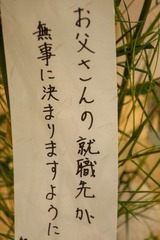 お父さんの就職先が
無事に決まりますように